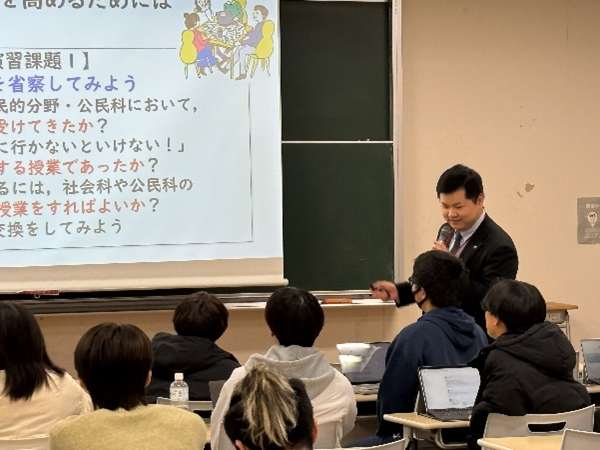 を高めるためには
演習課題Ⅰ】
を省察してみよう
民的分野・公民科において，
受けてきたか？
に行かないといけない！」
する授業であったか？
るには，社会科や公民科の
授業をすればよいか？
交換をしてみよう